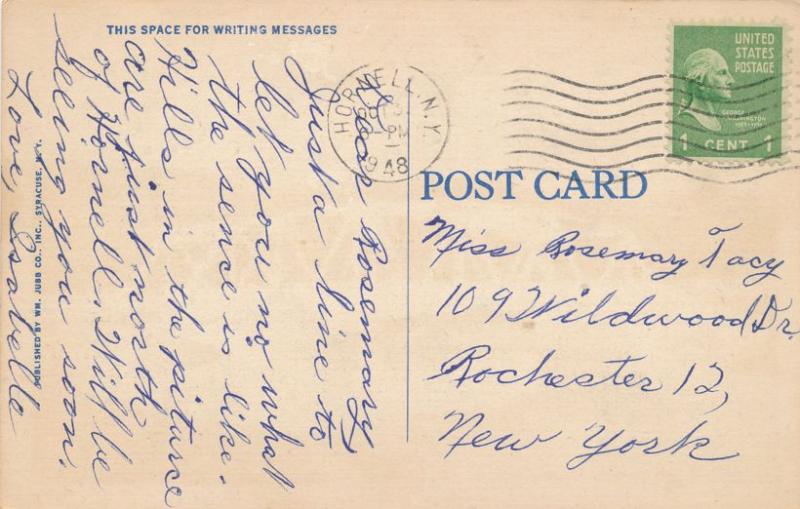 THIS SPACE FOR WRITING MESSAGES
Dear Rosemary
Just a line to
let you no what
the sence is like.
Hills in the piturse
are just north
of Hornell. Will be
seeing you soon.
Love, Isabelle
PUBLISHED BY WM. JUBB CO., INC., SYRACUSE, N. Y.
HORNELL. N.Y.
PM
1948
UNITED
STATES
POSTAGE
GEORGE
WASHINGTON
1 CENT 1
POST CARD
Miss Rosemary Tacy
109 Wildwood Dr.
Rochester 12,
New York